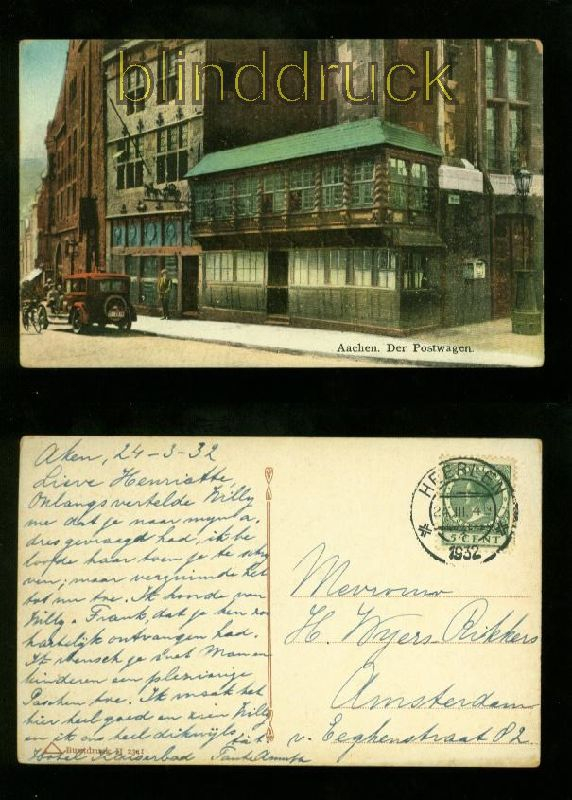 blinddruck
Aachen. Der Postwagen.
Aken, 24-3-32
Lieve Henriette,
Onlangs vertelde Willy
me dat je naar mijn a-
dres gevraagd had, ik be
loofde haar toen je te schrij
ven; maar verzuimde het
tot nu toe. Ik hoorde van
Willy & Frank, dat je hen zoo
hartelijk ontvangen had.
Ik wensch je met Man en
kinderen een plezierige
Paschen toe. Ik maak het
hier heel goed en zien Willy
en ik ons heel dikwijls.
Hotel Kaiserbad Tante
Buntdruck
HEERLEN
III
1932
5 CENT
Mevrouw
H. Wyers-Rikkers
Amsterdam
v. Eeghenstraat 82